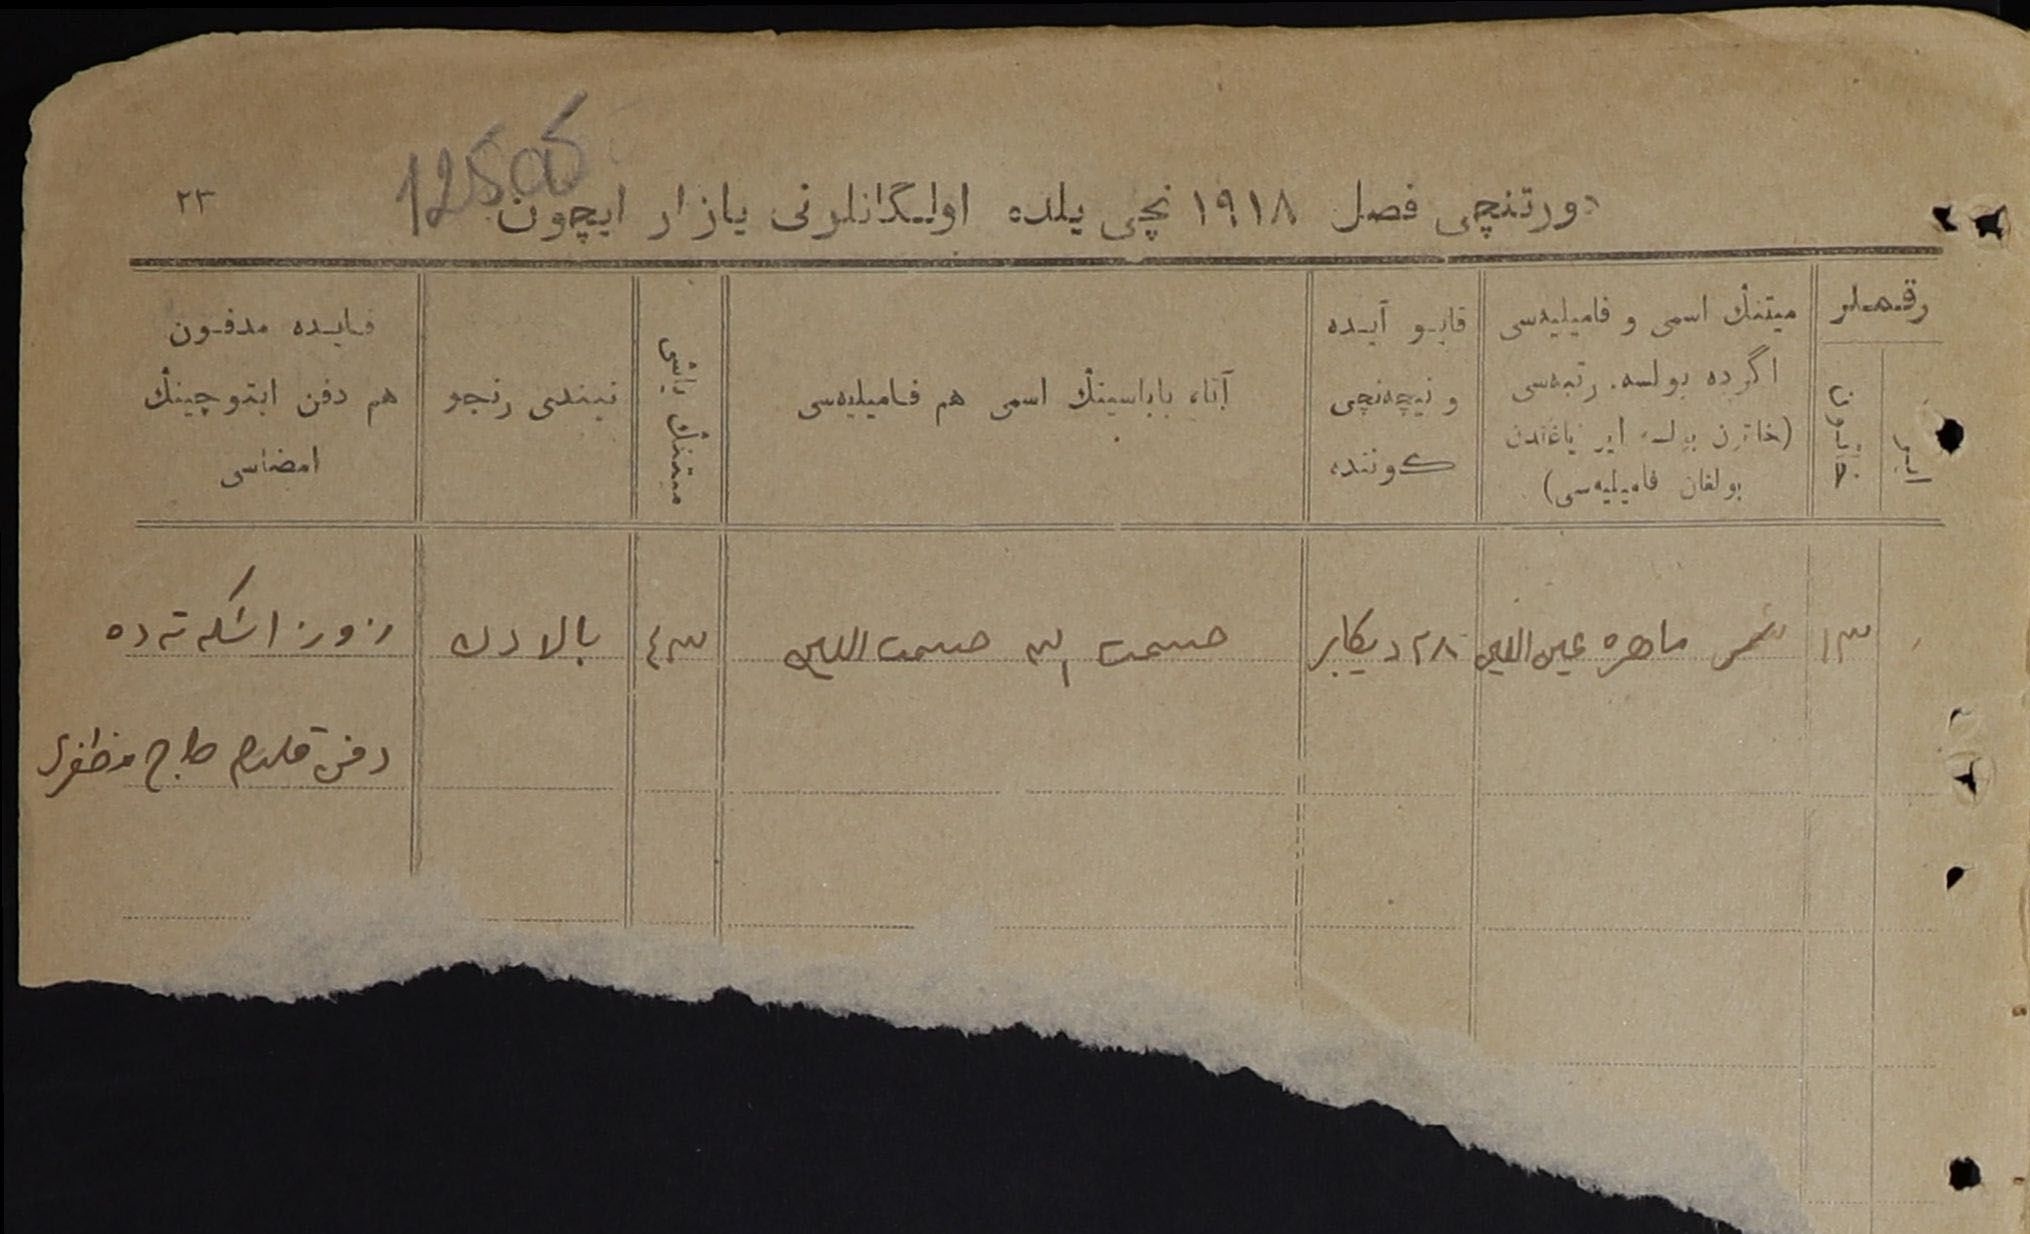 ٢٣
125 об
دورتنچی فصل ١٩١٨ نچی یلده اولـگانلرنی یازار ایچون
رقـمـلر
ایر
خاتون
میتنڭ اسمی و فامیلیه‌سی
اگرده بولسه. رتبه‌سی
(خاتون برلـه ایر یاغندن
بولغان فامیلیه‌سی)
قایـو آیـده
و نیچه‌نچی
كوننده
آتا، باباسینڭ اسمی هم فـامیلیه‌سی
میتنڭ یاشی
نیندی رنجو
قـایـده مدفـون
هم دفن ایتوچینڭ
امضاسی
١٣
ماهره عین الله
٢٨ دیكابر
حسمت الله
٤٣
بالادن
اشكه‌ته ده
دفن قلدم مظفر